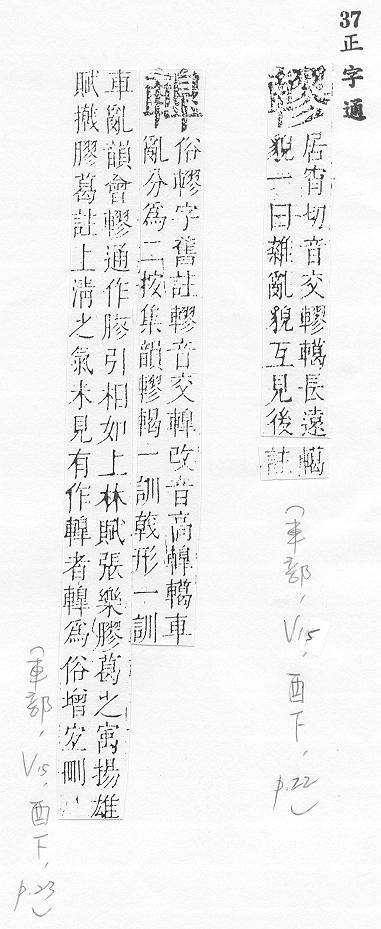 37正字通
轇
居宵切音交轇轕長遠轕
貌一曰雜亂貌互見後註
(車部, V15, 酉下, p.22)
俗轇字舊註轇音交改音高轕車
亂分為二按集韻轇轕一訓戟形一訓
車亂韻會轇通作膠引相如上林賦張樂膠葛之寓揚雄
賦撠膠葛註上清之氣未見有作者為俗增宜刪
(車部, V15, 酉下, p.23)